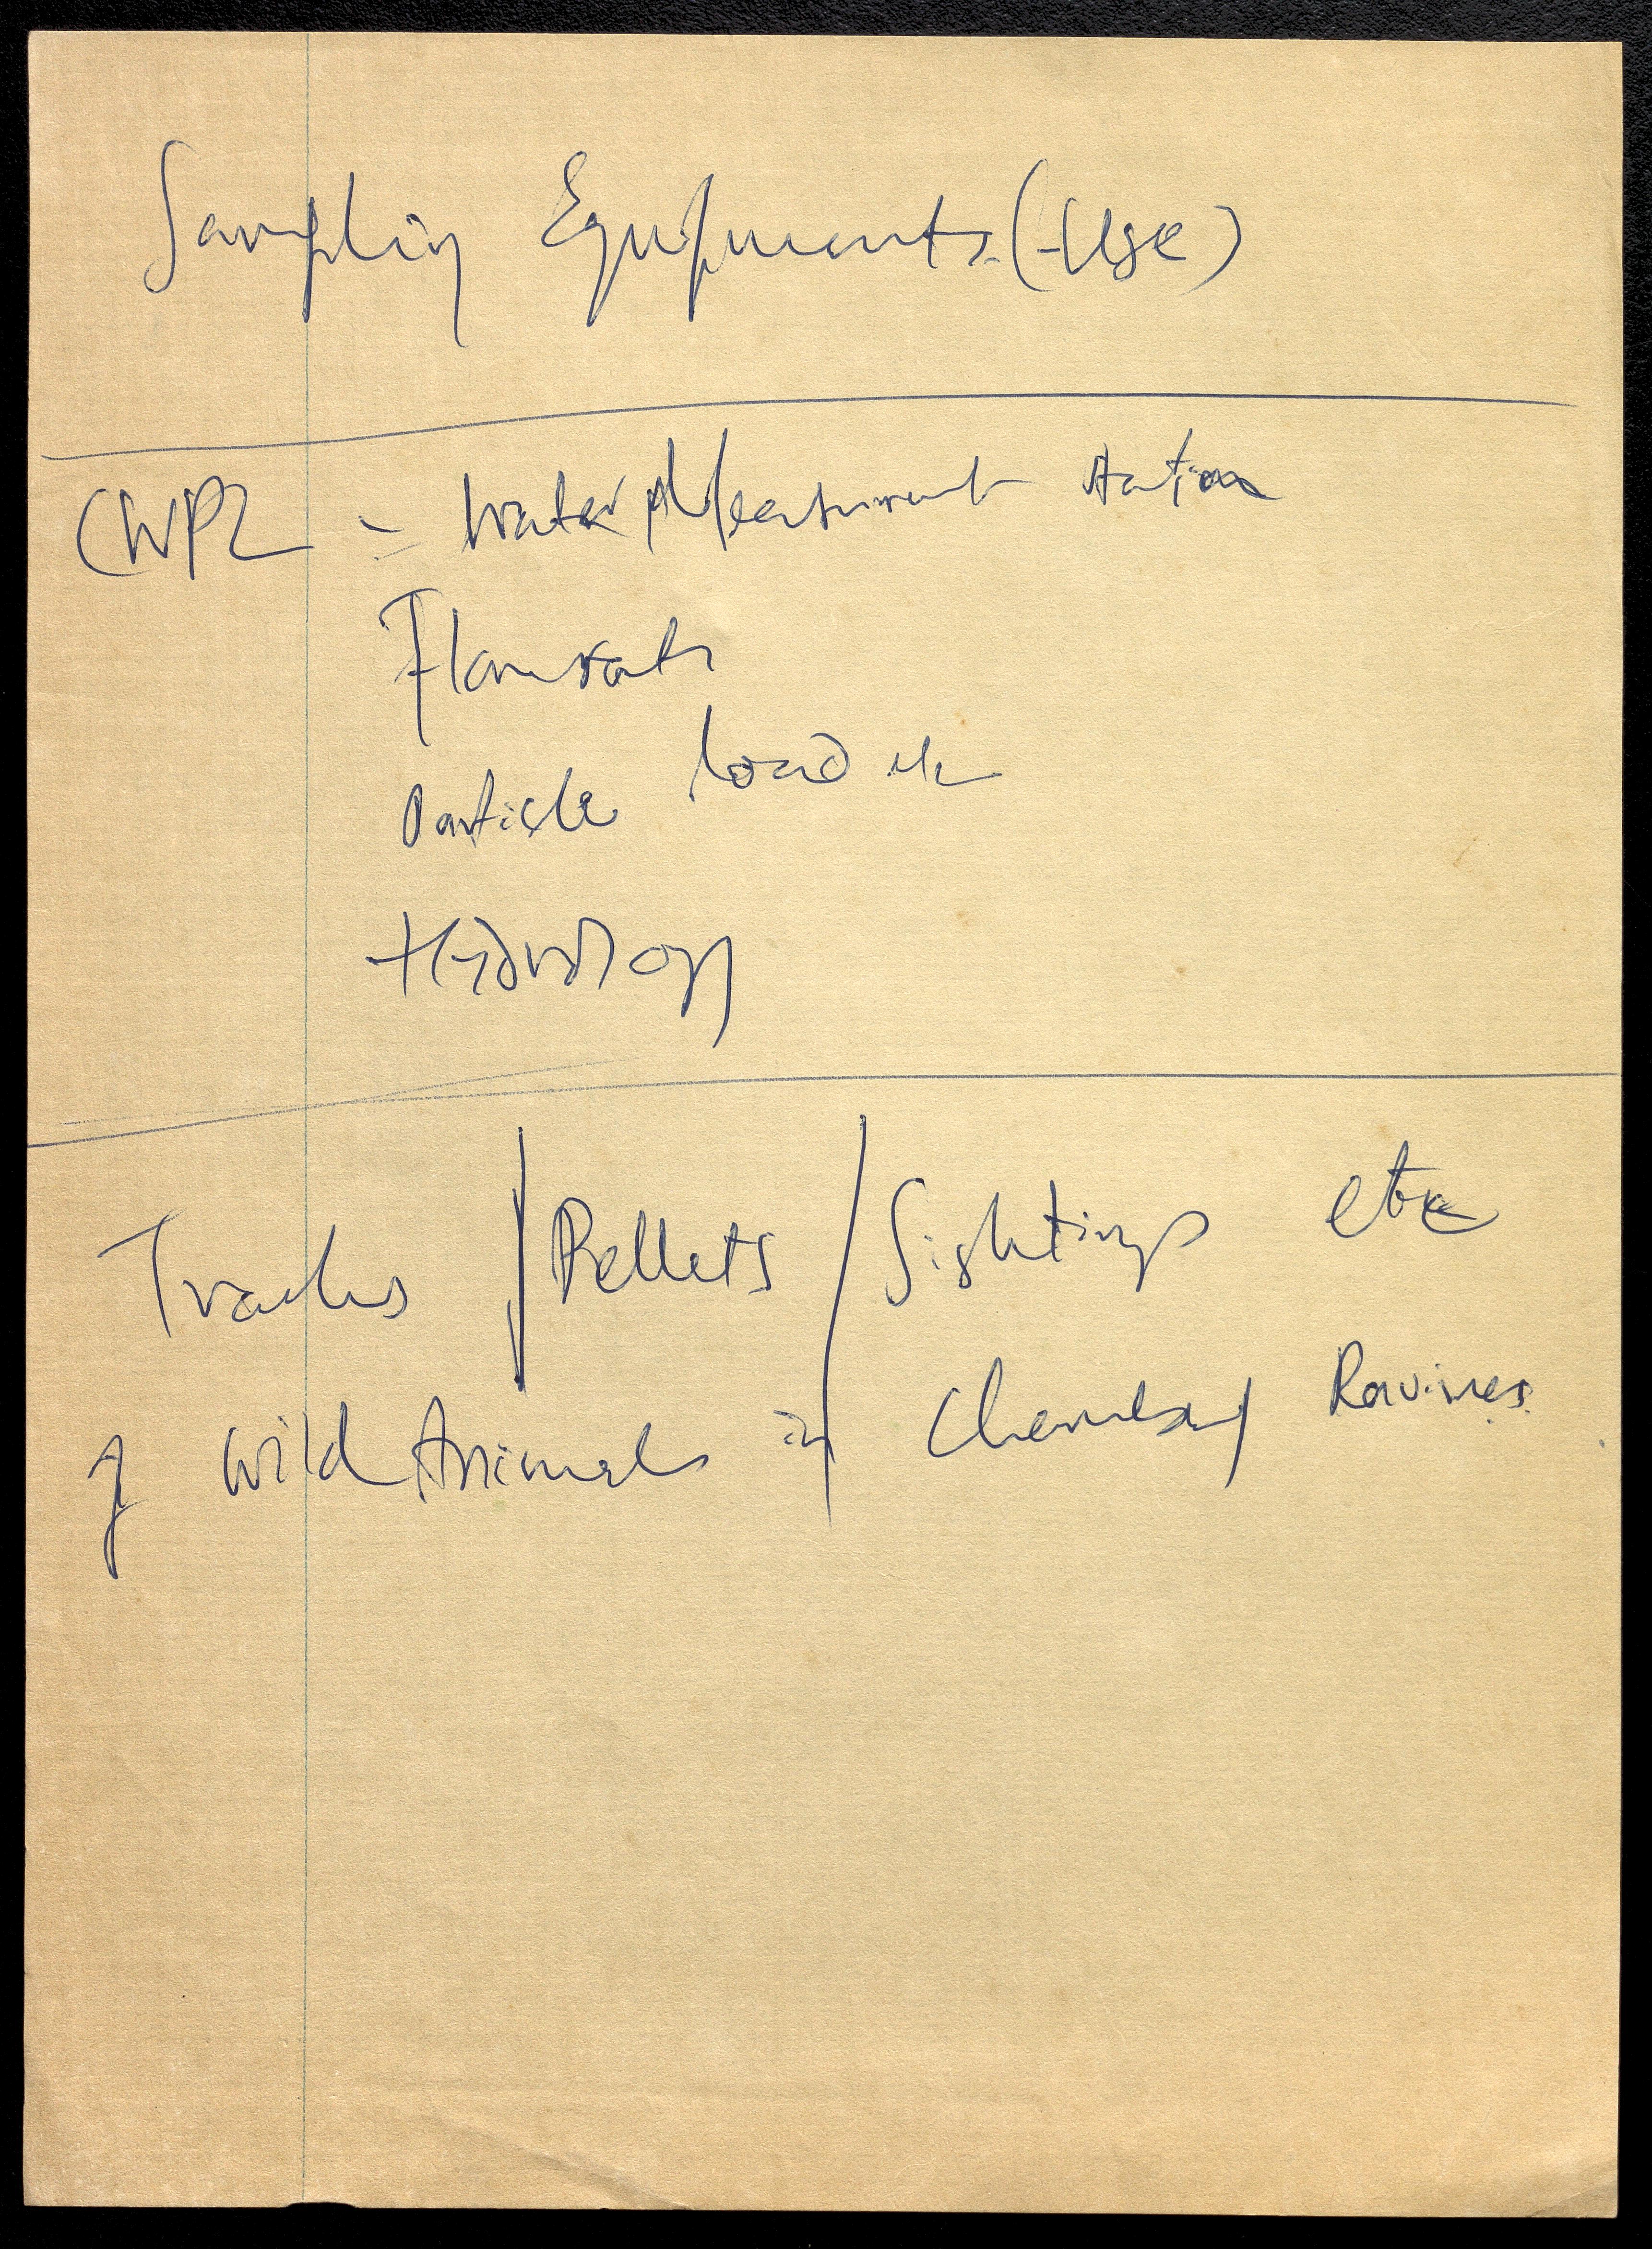 Sampling Equipments (-Use)
CWPL = Water Measurement station
Flowrate
Particle load etc
Hydrology
Tracks / Pellets / Sightings etc
of wild Animals in Ravines